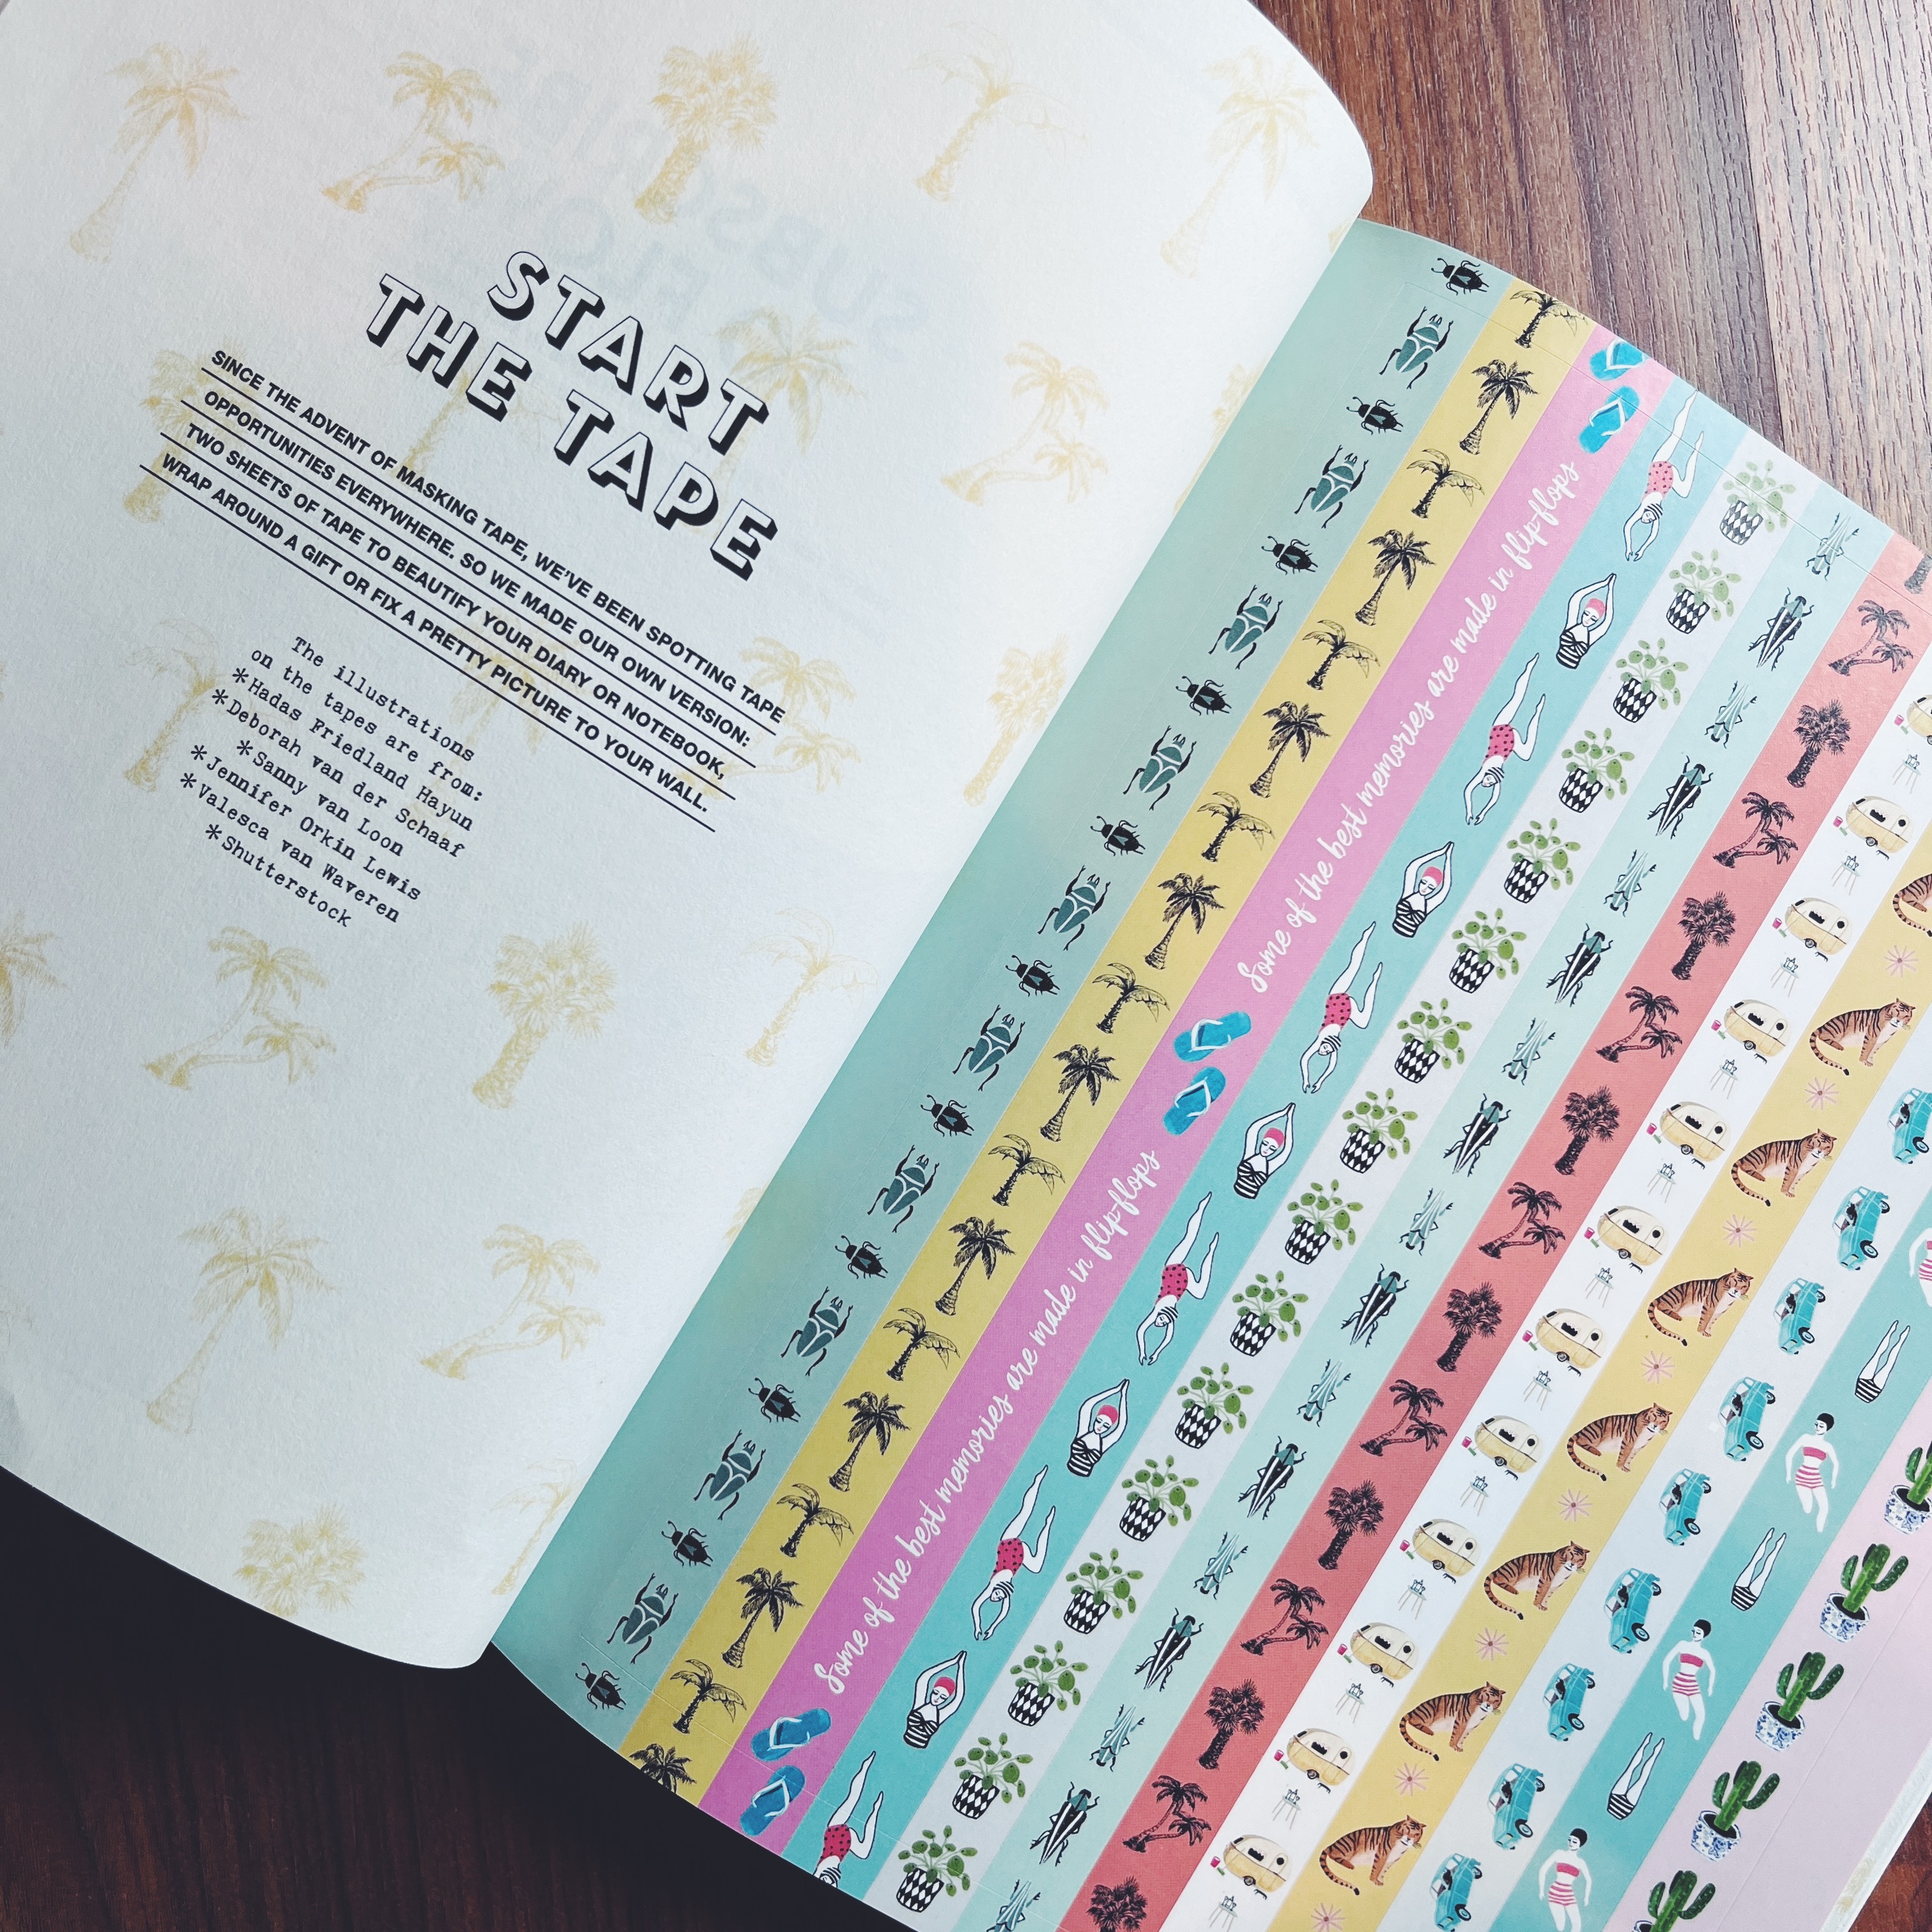 START
THE TAPE
SINCE THE ADVENT OF MASKING TAPE, WE'VE BEEN SPOTTING TAPE
OPPORTUNITIES EVERYWHERE. SO WE MADE OUR OWN VERSION:
TWO SHEETS OF TAPE TO BEAUTIFY YOUR DIARY OR NOTEBOOK,
WRAP AROUND A GIFT OR FIX A PRETTY PICTURE TO YOUR WALL.
The illustrations
on the tapes are from:
*Hadas Friedland Hayun
*Deborah van der Schaaf
*Sanny van Loon
*Jennifer Orkin Lewis
*Valesca van Waveren
*Shutterstock
Some of the best memories are made in flip-flops
Some of the best memories are made in flip-flops